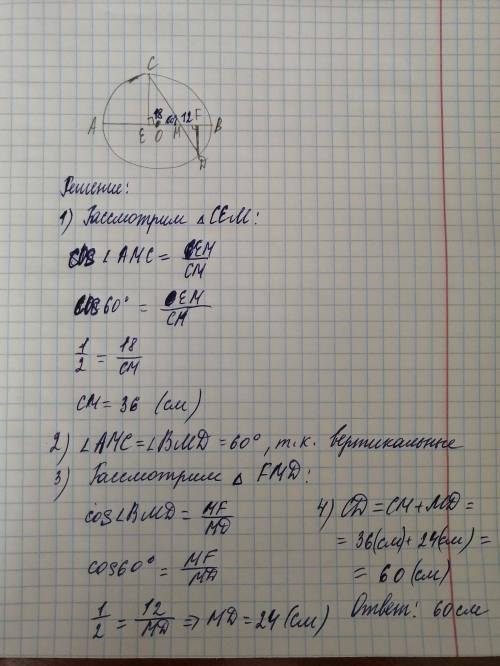 C
18 60° 12 F
A E O M B
D
Решение:
1) Рассмотрим △CEM:
cos∠AMC = EM/CM
cos60° = EM/CM
1/2 = 18/CM
CM = 36 (см)
2) ∠AMC = ∠BMD = 60°, т.к. вертикальные
3) Рассмотрим △ FMD:
cos∠BMD = MF/MD
cos60° = MF/MD
1/2 = 12/MD ⇒ MD = 24 (см)
4) CD = CM + MD =
= 36(см) + 24(см) =
= 60 (см)
Ответ: 60 см